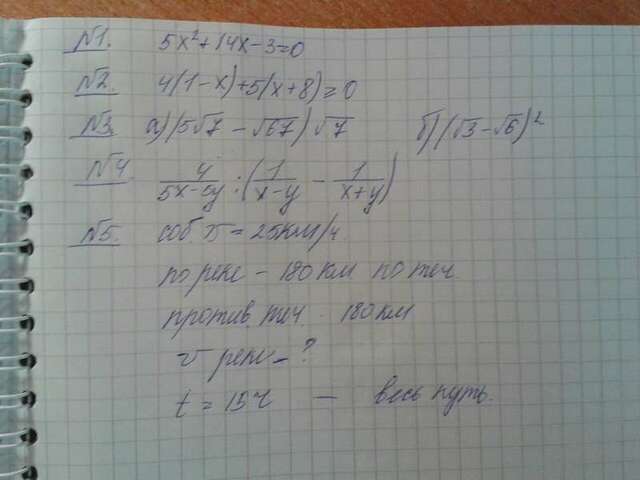 №1. 5x²+14x-3=0
№2. 4(1-x)+5(x+8)=0
№3 а)(5√7 - √67)√7 б)(√3-√6)²
№4 4/(5x-5y) : (1/(x-y) - 1/(x+y))
№5. соб. V = 25км/ч
по реке - 180 км по теч.
против. теч. - 180 км
v реки - ?
t = 15ч — весь путь.